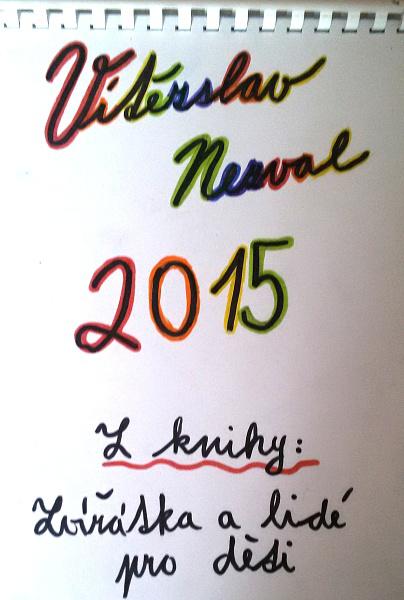 Vítězslav
Nezval
2015
Z knihy:
Zvířátka a lidé
pro děti